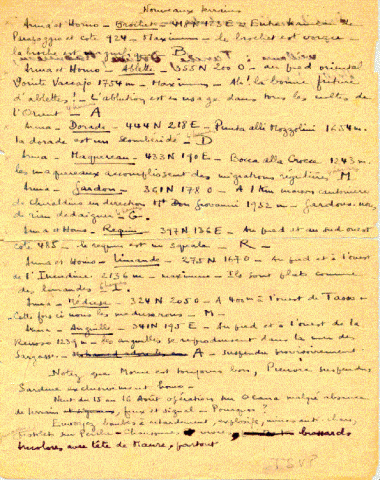 Nouveaux terrains
Arma et Homo - Brochet - 
Paraggio et cote 924 - Maximum - le brochet est vorace -
la broche est B
Arma et Homo - Ablette - 355N 200 O - au pied oriental
Pointe Vaccaja 1754m - Maximum - Ah! la bonne friture
d'ablettes! - L'ablution est en usage dans tous les cultes de
l'Orient - A
Arma - Dorade - 444N 218E - Punta alli Mozzolini 1254m.
la dorade est un - D
Arma - Maquereau - 433N 190E - Bocca alla Croce 1243m.
les maquereaux accomplissent des migrations régulières M
Arma - Gardon - 361N 178 O - A 1Km maison cantonnière
de Ghisaldina en direction Mt Don Giovanni 1952m - Gardons-nous
de rien dédaigner - G.
Arma et Homo - Requin - 397N 136E - Au pied et au sud ouest
cote 485 - le requin est un squale - R -
Arma et Homo - Limande - 275N 167 O - Au pied et à l'ouest
de l'Incudine 2136m - Maximum - Ils sont plats comme
des limandes
Arma - Méduse - 324N 205 O - A 400m à l'ouest de Tasso -
Cette fois ci nous les méduserons - M -
Arma - Anguille - 341N 195E - Au pied et à l'ouest de la
1239m - les anguilles se reproduisent dans la mer des
Sargasses - A - Suspendu provisoirement -
Notez que Morue est toujours bon, suspendu
Sardine exclusivement bonne -
Nuit du 15 au 16 Août opération sur malgré absence
de terrain, feux et signal - Pourquoi?
Envoyez bombes à retardement, explosifs,
pistolets
tricolores avec tête de Maure, partout
TSVP